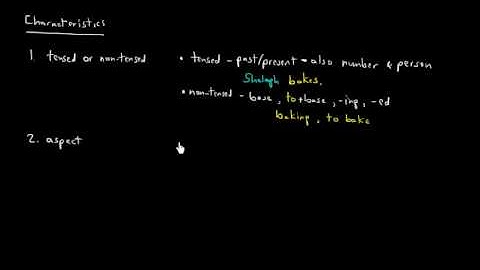 Characteristics
1. tensed or non-tensed
• tensed - past/present → also number & person
Shelagh bakes.
• non-tensed - base, to+base, -ing, -ed
baking, to bake
2. aspect